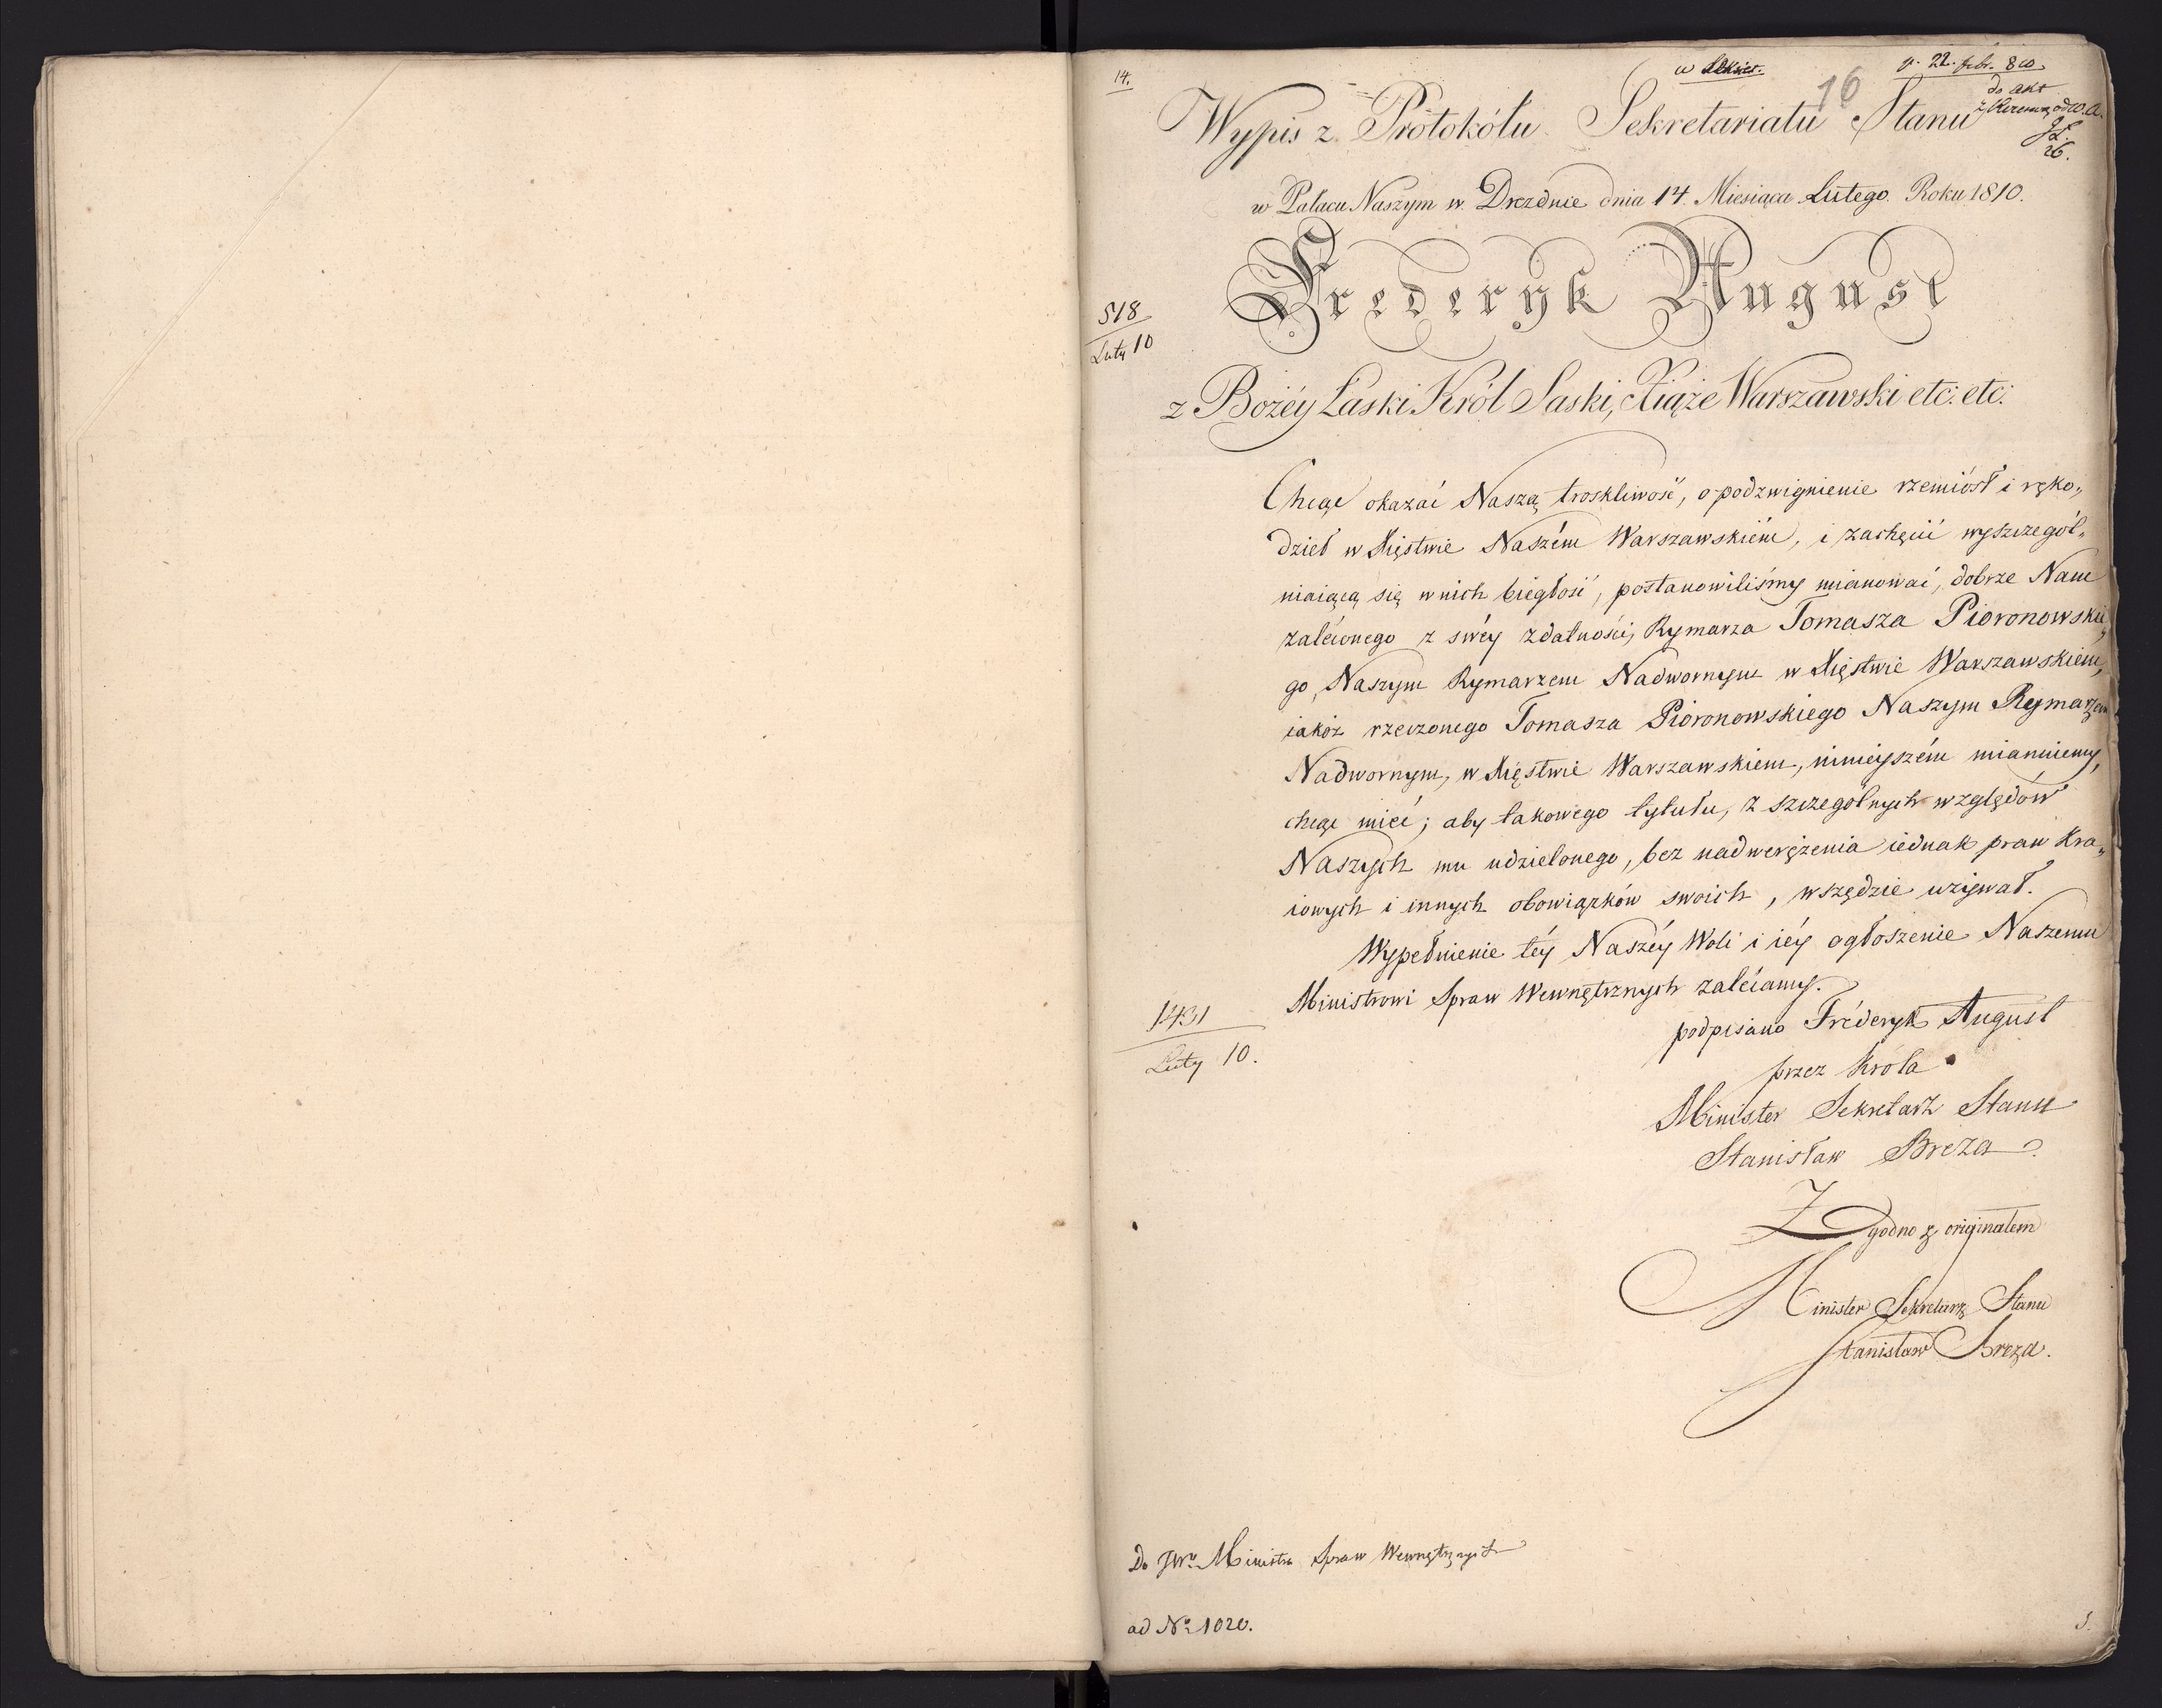 14.
16
p. 22. febr. 810.
do akt
Wypis z Protokółu Sekretariatu Stanu
26.
w Pałacu Naszym w Dreznie dnia 14. Miesiąca Lutego. Roku 1810.
Frederyk August
518
Luty 10
z Bożéy Łaski Król Saski, Xiąże Warszawski etc: etc:
Chcąc okazać Naszą troskliwość, o podzwignienie rzemiósł i ręko„
dzieł w Xięstwie Naszém Warszawskiém, i zachęcić wyszczegól„
niaiącą się w nich biegłość, postanowiliśmy mianować, dobrze Nam
zaléconego z swéy zdatności, Rymarza Tomasza Pioronowskie„
go, Naszym Rymarzem Nadwornym w Xięstwie Warszawskiem,
iakoż rzeczonego Tomasza Pioronowskiego Naszym Rymarzem
Nadwornym, w Xięstwie Warszawskiem, ninieyszém mianuiemy,
chcąc mieć; aby takowego tytułu, z szczególnych względów
Naszych mu udzielonego, bez nadwerężenia iednak praw Kra„
iowych i innych obowiązków swoich, wszędzie używał.
Wypełnienie téy Naszéy Woli i iéy ogłoszenie Naszemu
Ministrowi Spraw Wewnętrznych zalécamy.
1431
Luty 10.
podpisano Fréderyk August
przez Króla
Minister Sekretarz Stanu
Stanisław Breza
Zgodno z originałem
Minister Sekretarz Stanu
Stanisław Breza.
Do JWo Ministra Spraw Wewnętrznych
ad No 1020.